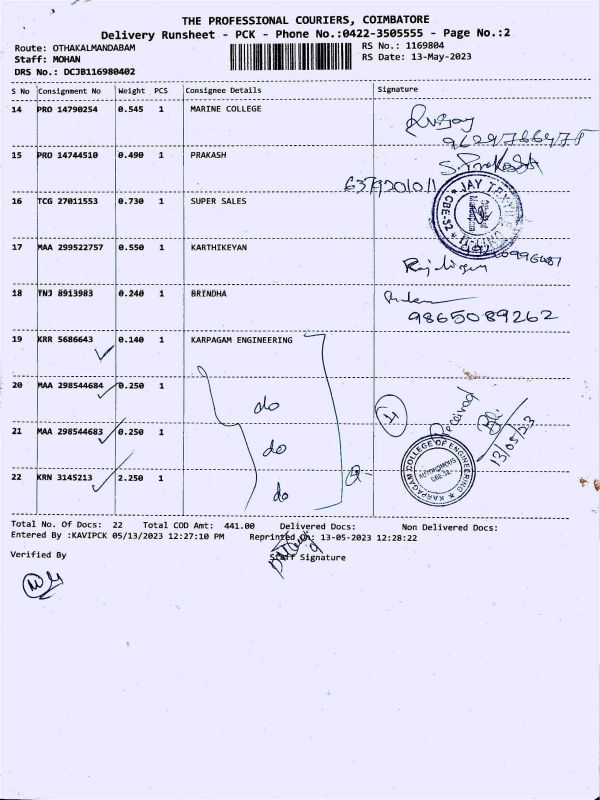 THE PROFESSIONAL COURIERS, COIMBATORE
Delivery Runsheet - PCK - Phone No.:0422-3505555 - Page No.:2
Route: OTHAKALMANDABAM
RS No.: 1169804
Staff: MOHAN
RS Date: 13-May-2023
DRS No.: DCJB116980402
S No Consignment No Weight PCS Consignee Details Signature
14 PRO 14790254 0.545 1 MARINE COLLEGE
15 PRO 14744510 0.490 1 PRAKASH
S. Prakash
16 TCG 27011553 0.730 1 SUPER SALES
17 MAA 299522757 0.550 1 KARTHIKEYAN
18 TNJ 8913983 0.240 1 BRINDHA
9865089262
19 KRR 5686643 0.140 1 KARPAGAM ENGINEERING
20 MAA 298544684 0.250 1 do
21 MAA 298544683 0.250 1 do
22 KRN 3145213 2.250 1 do
4
Received
13/05/23
KARPAGAM COLLEGE OF ENGINEERING
AUTONOMOUS
CBE-32
Total No. Of Docs: 22 Total COD Amt: 441.00 Delivered Docs: Non Delivered Docs:
Entered By :KAVIPCK 05/13/2023 12:27:10 PM Reprinted On: 13-05-2023 12:28:22
Verified By Staff Signature